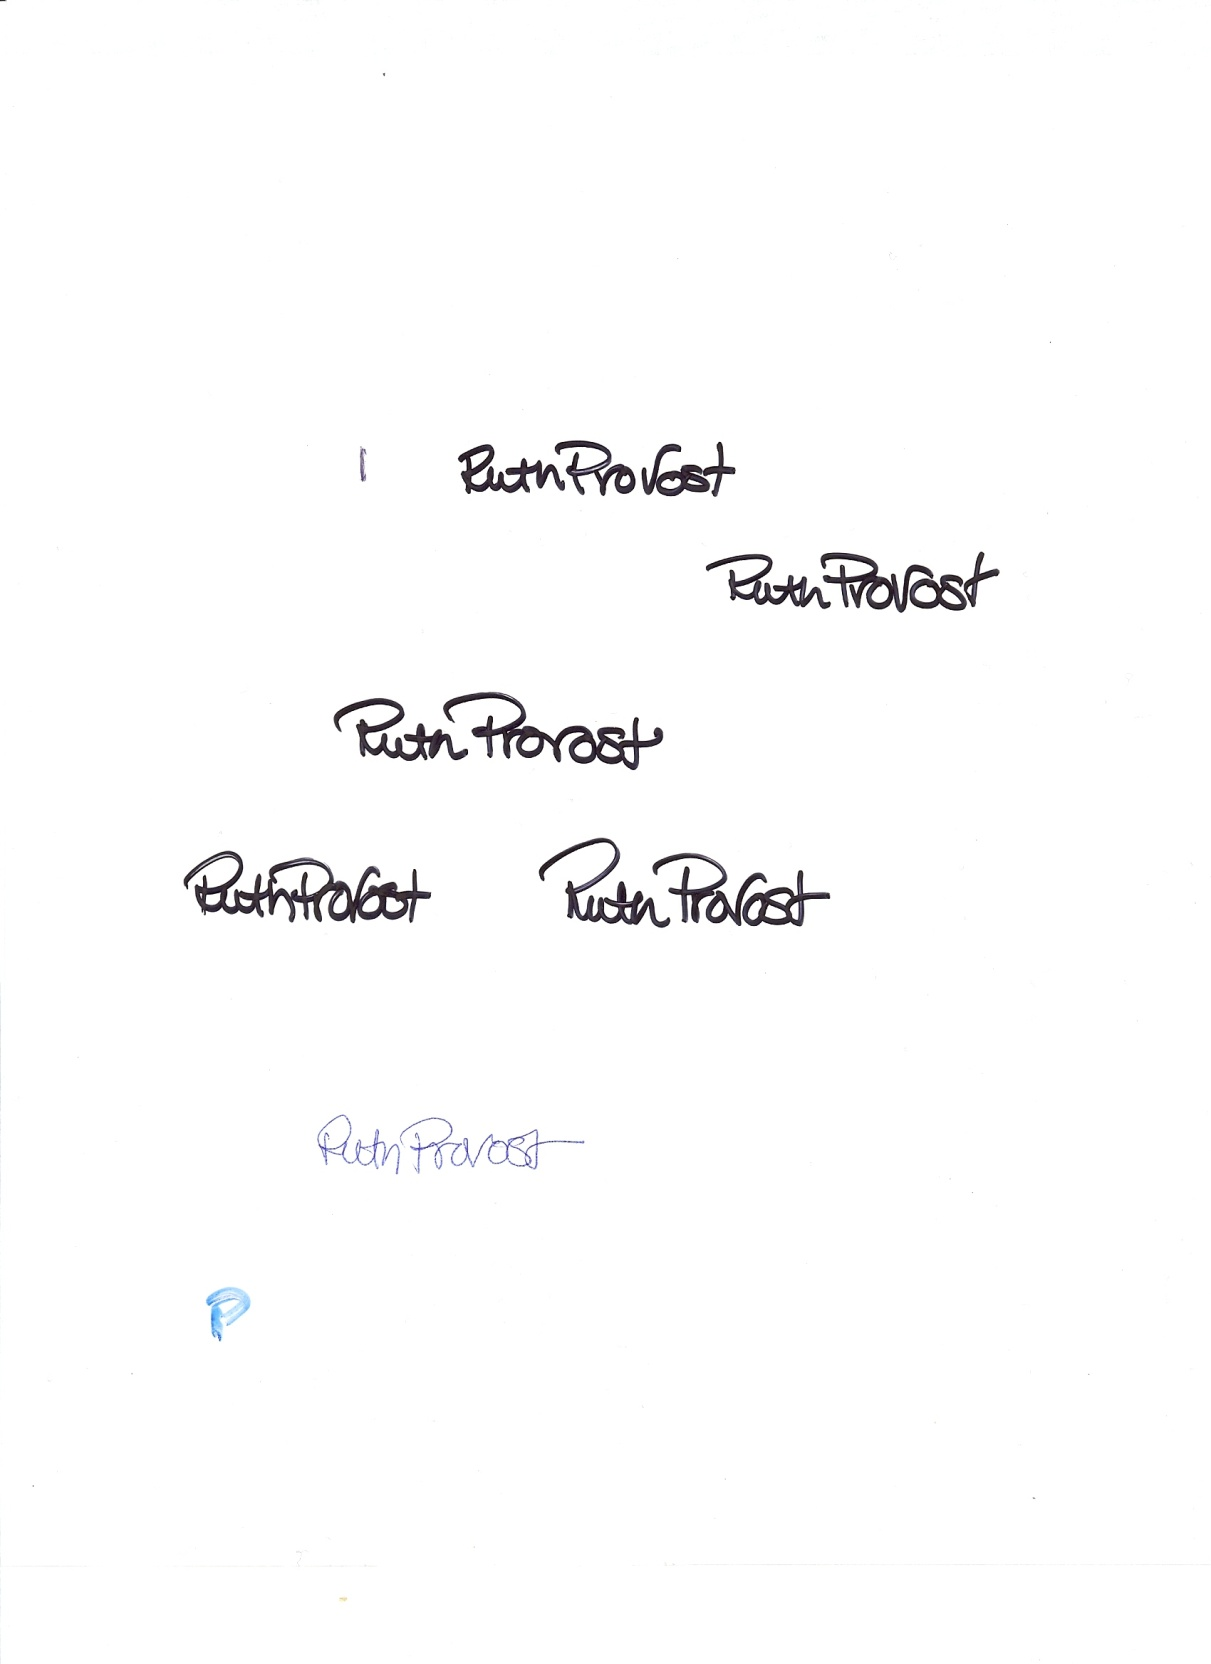 Ruth Provost
Ruth Provost
Ruth Provost
Ruth Provost Ruth Provost
Ruth Provost
P